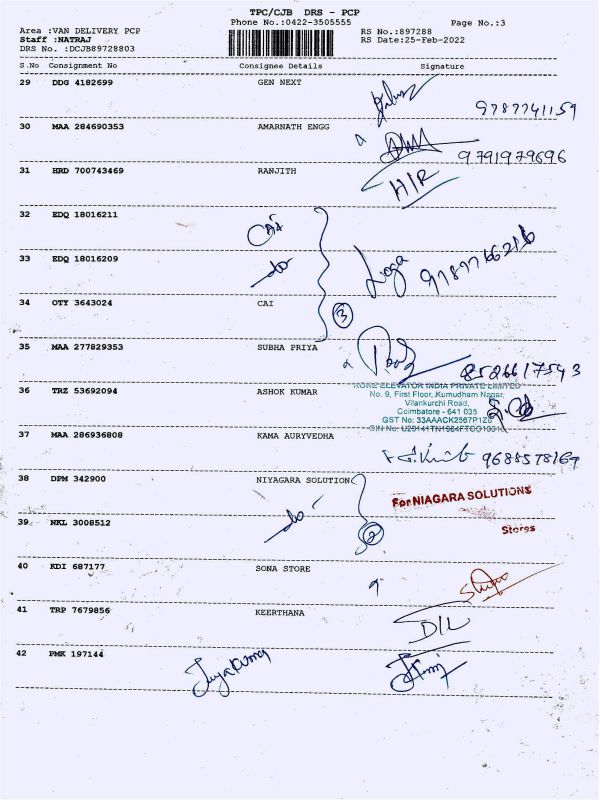 TPC/CJB DRS - PCP
Phone No.:0422-3505555 Page No.:3
Area :VAN DELIVERY PCP RS No.:897288
Staff :NATRAJ RS Date:25-Feb-2022
DRS No. :DCJB89728803
S.No Consignment No Consignee Details Signature
29 DDG 4182699 GEN NEXT
9787741159
30 MAA 284690353 AMARNATH ENGG
9791979696
31 HRD 700743469 RANJITH
H/R
32 EDQ 18016211
CAI
33 EDQ 18016209
do Loga 9787766216
34 OTY 3643024 CAI
3
35 MAA 277829353 SUBHA PRIYA
8526617543
36 TRZ 53692094 ASHOK KUMAR
KONE ELEVATOR INDIA PRIVATE LIMITED
No. 9, First Floor, Kumudham Nagar,
Vilankurchi Road,
Coimbatore - 641 035
GST No: 33AAACK2567P1Z0
37 MAA 286936808 KAMA AURYVEDHA
9688578167
38 DPM 342900 NIYAGARA SOLUTION
For NIAGARA SOLUTIONS
39 NKL 3008512
do 2 Stores
40 KDI 687177 SONA STORE
41 TRP 7679856 KEERTHANA
D/L
42 PMK 197144
Jeyakumar